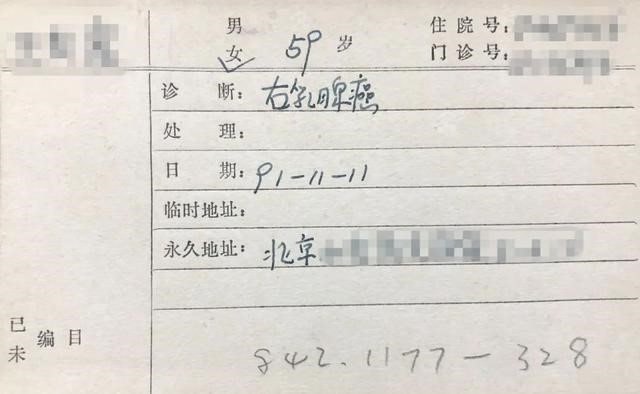 男 住院号:
女 59 岁 门诊号:
诊 断: 右乳腺癌
处 理:
日 期: 91-11-11
临时地址:
永久地址: 北京
已
未 编目
842.1177-328